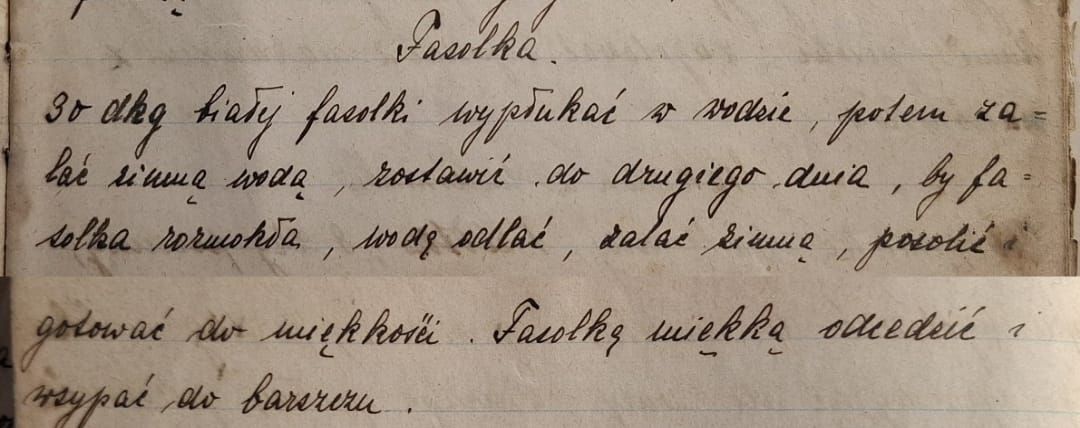 Fasolka.
30 dkg białej fasolki wypłukać w wodzie, potem za=
lać zimną wodą, zostawić do drugiego dnia, by fa=
solka rozmokła, wodę odlać, zalać zimną, posolić i
gotować do miękkości. Fasolkę miękką odcedzić i
wsypać do barszczu.